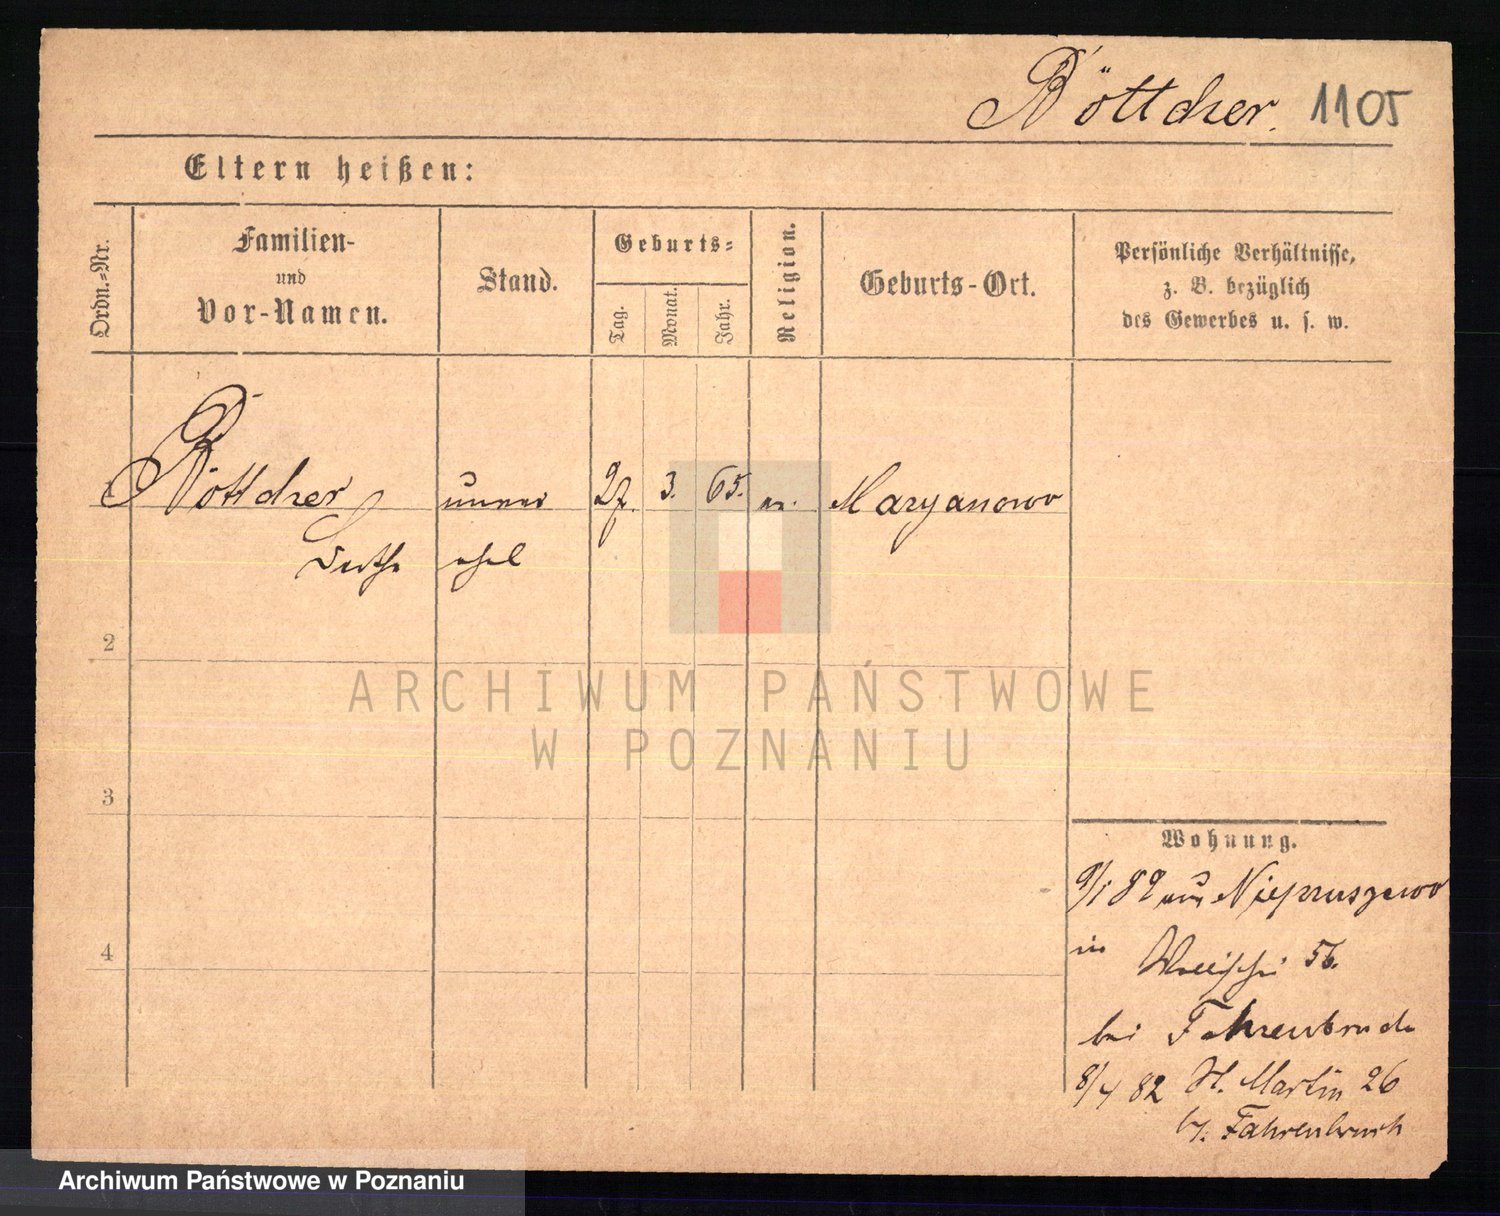 Böttcher. 1105
Eltern heißen:
Ordn.-Nr.
Familien-
und
Vor-Namen.
Stand.
Geburts-
Tag.
Monat.
Jahr.
Religion.
Geburts-Ort.
Persönliche Verhältnisse,
z. B. bezüglich
des Gewerbes u. s. w.
1 Böttcher unver 27. 3. 65. ev. Maryanowo
ehel
2
3
4
Wohnung.
9/1 82 aus Niepruszewo
in Wallischei 56.
bei Fahrenbruch
8/4 82 St. Martin 26
b. Fahrenbruch
ARCHIWUM PAŃSTWOWE
W POZNANIU
Archiwum Państwowe w Poznaniu